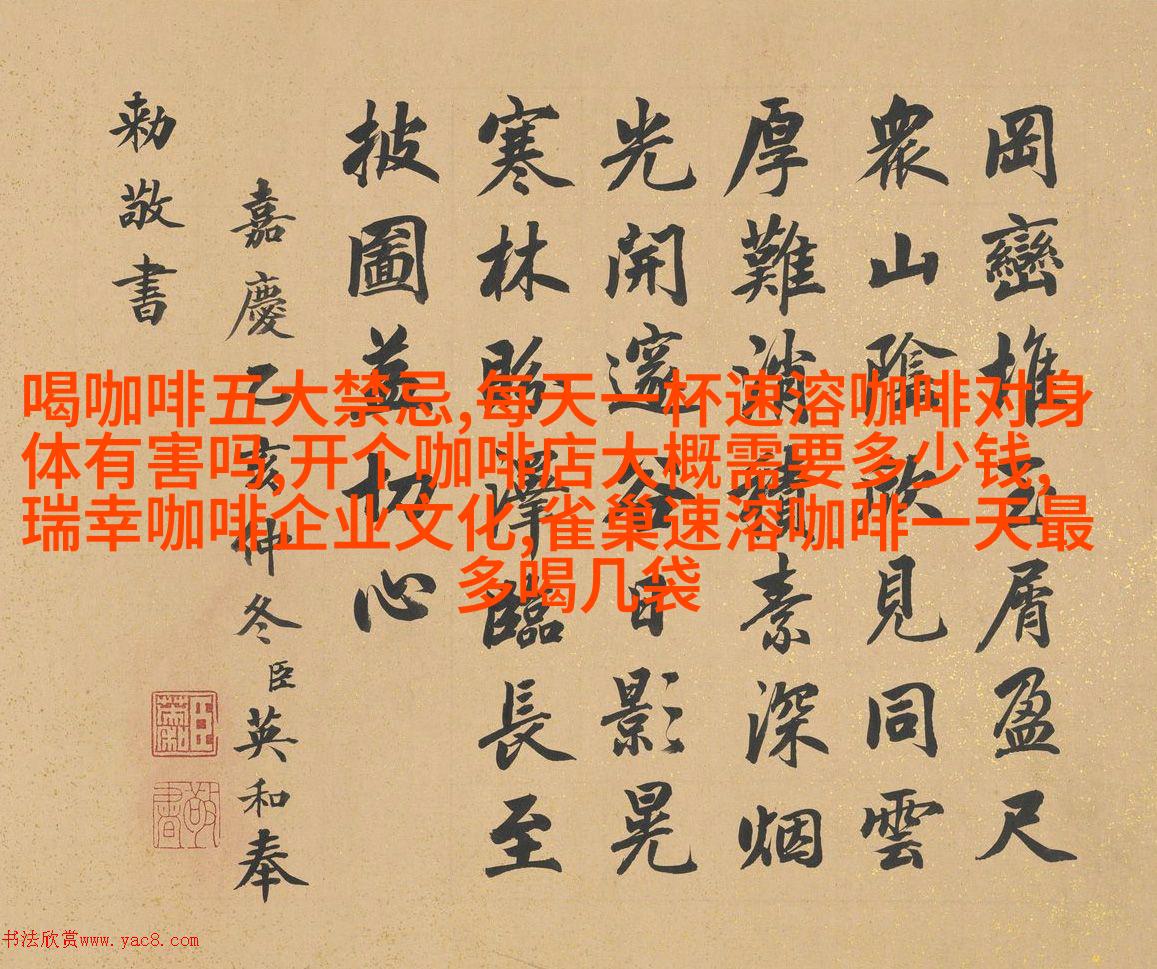 岡巒堆玉屑盈尺
衆山陰欣見同雲
厚難淡素深烟
光開邃谷日影晃
寒林澤臨長至
披圖益切心
嘉慶乙亥仲冬臣英和奉
勅敬書
喝咖啡五大禁忌,每天一杯速溶咖啡对身
体有害吗,开个咖啡店大概需要多少钱,
瑞幸咖啡企业文化,雀巢速溶咖啡一天最
多喝几袋
书法欣赏www.yac8.com